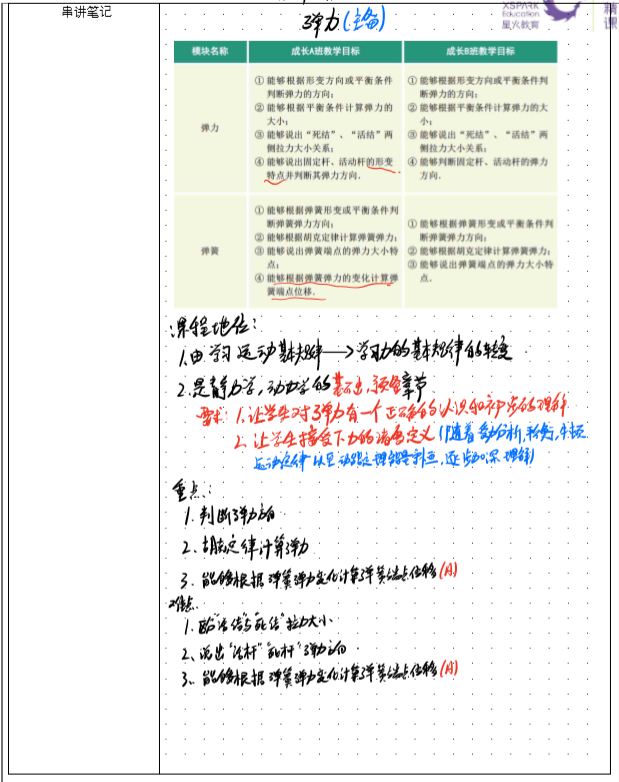 串讲笔记
弹力(主备)
XSPARK
Education
星火教育
精
课
模块名称 成长A班教学目标 成长B班教学目标
弹力
① 能够根据形变方向或平衡条件
判断弹力的方向;
② 能够根据平衡条件计算弹力的
大小;
③ 能够说出“死结”、“活结”两
侧拉力大小关系;
④ 能够说出固定杆、活动杆的形变
特点并判断其弹力方向.
① 能够根据形变方向或平衡条件判
断弹力的方向;
② 能够根据平衡条件计算弹力的大
小;
③ 能够说出“死结”、“活结”两
侧拉力大小关系;
④ 能够判断固定杆、活动杆的弹力
方向.
弹簧
① 能够根据弹簧形变或平衡条件判
断弹簧弹力方向;
② 能够根据胡克定律计算弹簧弹力;
③ 能够说出弹簧端点的弹力大小特
点;
④ 能够根据弹簧弹力的变化计算弹
簧端点位移.
① 能够根据弹簧形变或平衡条件判
断弹簧弹力方向;
② 能够根据胡克定律计算弹簧弹力;
③ 能够说出弹簧端点的弹力大小特
点.
课程地位:
1.由学习运动基本规律→学习力的基本规律的转变
2.是静力学,动力学的基础,预备章节
要求:1.让学生对弹力有一个正确的认识和初步的理解
2.让学生接受下力的诸多定义(随着受力分析,平衡,牛顿
运动定律以及动能定理等,逐步加深理解)
重点:
1.判断弹力方向
2.胡克定律计算弹力
3.能够根据弹簧弹力变化计算弹簧端点位移(A)
难点:
1."活结"与"死结"拉力大小
2、说出"活杆""死杆"弹力方向
3.能够根据弹簧弹力变化计算弹簧端点位移(A)